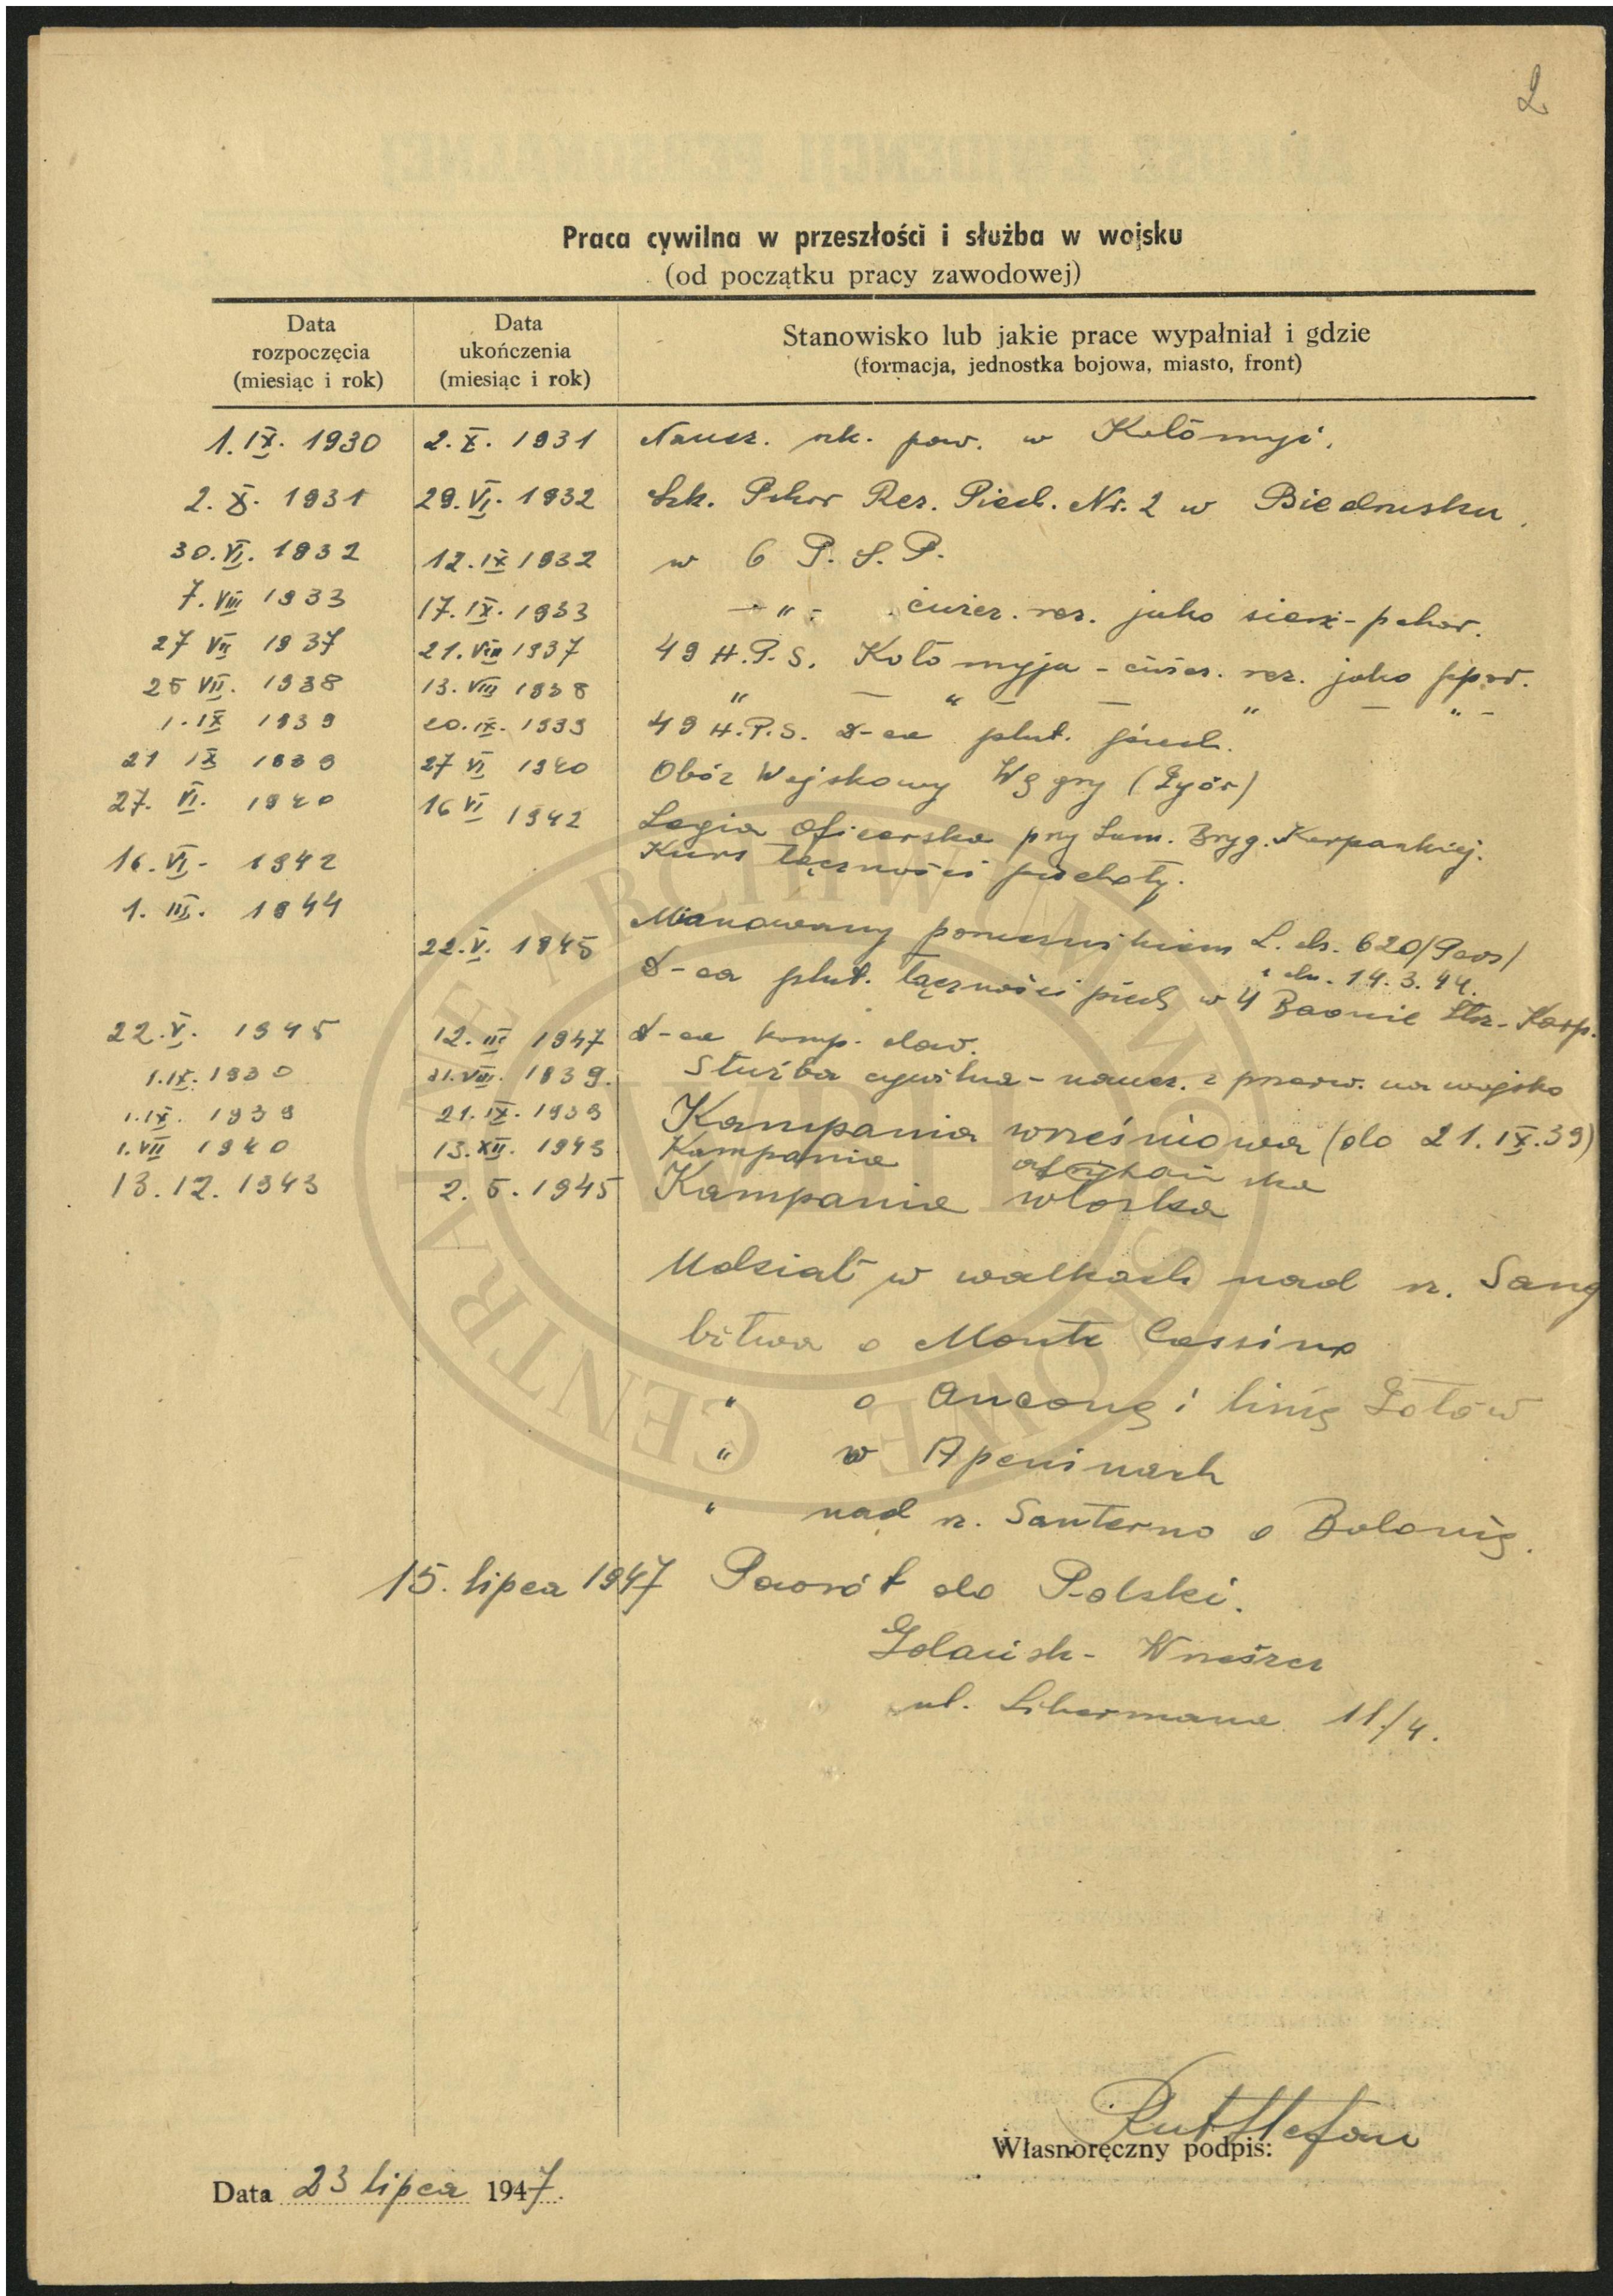 2
Praca cywilna w przeszłości i służba w wojsku
(od początku pracy zawodowej)
Data rozpoczęcia (miesiąc i rok) Data ukończenia (miesiąc i rok) Stanowisko lub jakie prace wypałniał i gdzie (formacja, jednostka bojowa, miasto, front)
1. IX. 1930 2. X. 1931 Naucz. szk. pow. w Kołomyi.
2. X. 1931 29. VI. 1932 Szk. Pchor Rez. Piech. Nr. 2 w Biedrusku.
30. VI. 1932 12. IX 1932 w 6 P. S. P.
7. VIII 1933 17. IX. 1933 — " - ćwicz. rez. jako sierż-pchor.
27 VII 1937 21. VIII 1937 49 H.P.S. Kołomyja - ćwicz. rez. jako ppor.
25 VII. 1938 13. VIII 1938 " — " — " — " -
1. IX 1939 20. IX. 1939 49 H.P.S. D-ca plut. piech.
21 IX 1939 27 VI 1940 Obóz Wojskowy Węgry (Győr)
27. VI. 1940 16 VI 1942 Legia Oficerska przy Sam. Bryg. Karpackiej.
16. VI - 1942 Kurs łączności piechoty.
1. III. 1944 Mianowany porucznikiem L. dz. 620/Pers/
z dn. 14. 3. 44.
22. V. 1945 D-ca plut. łączności piech w 4 Baonie Strz. Karp.
22. V. 1945 12. III 1947 D-ca komp. dow.
1. IX. 1930 31. VIII. 1939. Służba cywilna - naucz. z przerw. na wojsko
1. IX. 1939 21. IX. 1939 Kampania wrześniowa (do 21. IX. 39)
1. VII 1940 13. XII. 1943 Kampania afrykańska
13. 12. 1943 2. 5. 1945 Kampania włoska
Udział w walkach nad rz. Sang
bitwa o Monte Cassino
" o Anconę i linię Gotów
" w Apeninach
" nad rz. Santerno o Bolonię.
15. lipca 1947 Powrót do Polski.
Gdańsk - Wrzeszcz
ul. Libermana 11/4.
Rut Stefan
Własnoręczny podpis:
Data 23 lipca 1947.
CENTRALNE ARCHIWUM WOJSKOWE
WBH